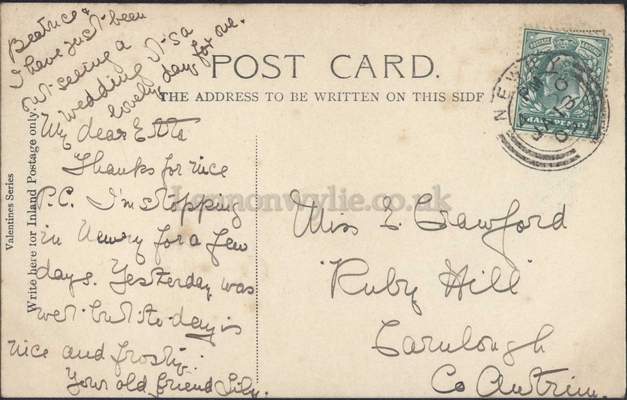 Beatrice &
I have just been
out seeing a
wedding it's a
lovely day for one.
POST CARD.
THE ADDRESS TO BE WRITTEN ON THIS SIDE
My dear Etta
Thanks for nice
P.C. I'm stopping
in Newry for a few
days. Yesterday was
wet but to-day is
nice and frosty.
Your old friend Lily.
Valentines Series
Write here for Inland Postage only.
Lennonwylie.co.uk
Miss E. Crawford
"Ruby Hill"
Carnlough
Co Antrim.
POSTAGE
HALF PENNY
NEW